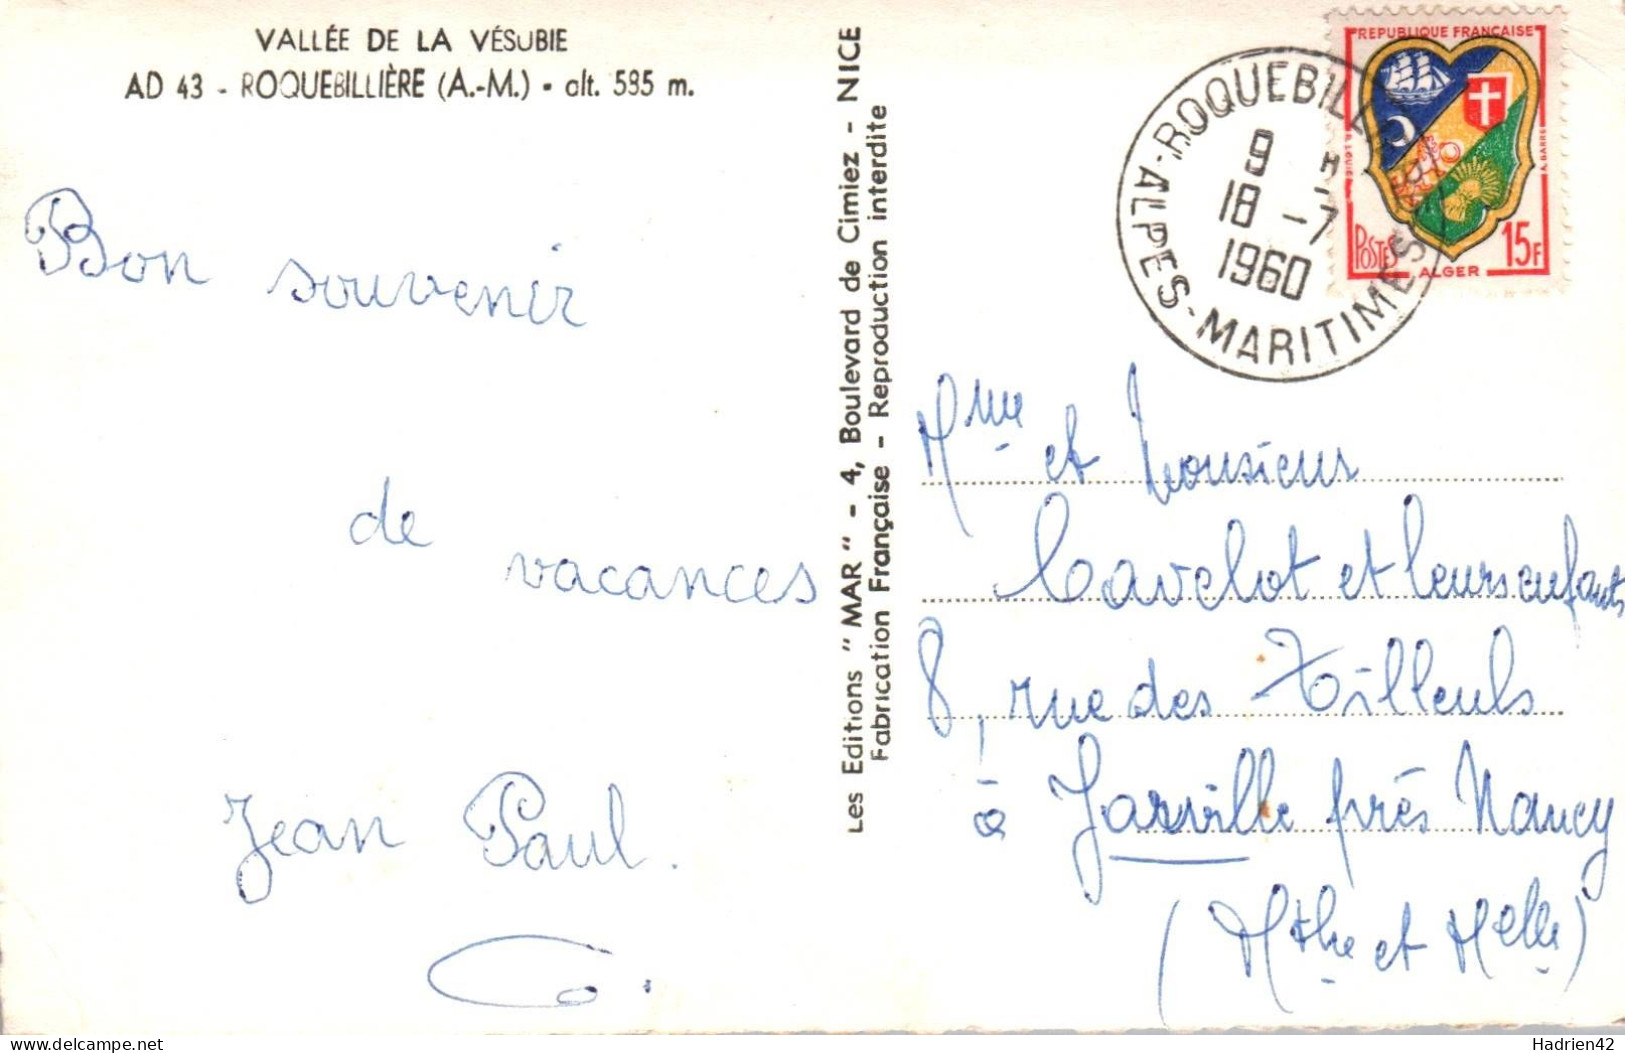 VALLÉE DE LA VÉSUBIE
AD 43 - ROQUEBILLIÈRE (A.-M.) - alt. 595 m.
Bon souvenir
de vacances
Jean Paul.
Les Editions "MAR" - 4, Boulevard de Cimiez - NICE
Fabrication Française - Reproduction interdite
ROQUEBILLIÈRE
9 H
18 - 7
1960
ALPES-MARITIMES
REPUBLIQUE FRANÇAISE
POSTES
15F
ALGER
A. BARRE
Mme et Monsieur
Cavelot et leurs enfants
8, rue des Tilleuls
à Jarville près Nancy
(Mthe et Melle)
Hadrien42
delcampe.net